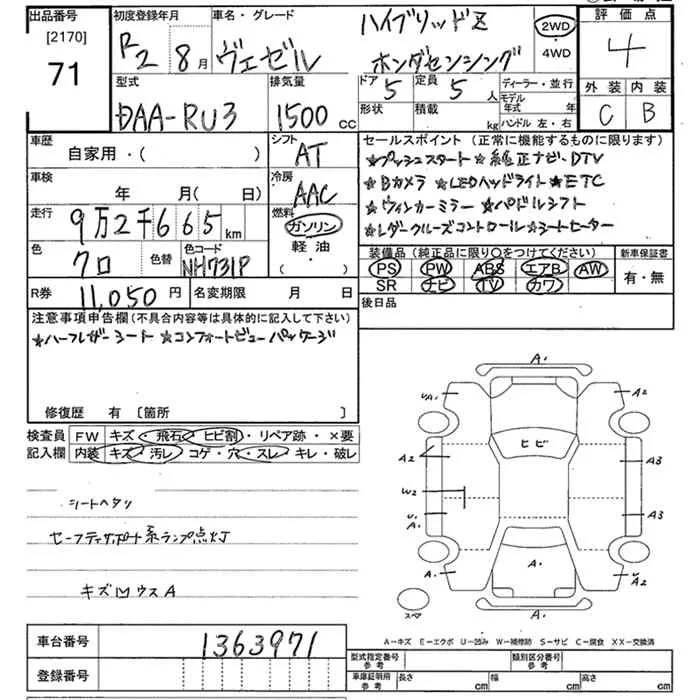 出品番号 [2170] 71
初度登録年月 R2 8月
車名・グレード ヴェゼル ハイブリッドZ ホンダセンシング
2WD ・4WD
評価点 4
外装 内装
C B
型式 DAA-RU3
排気量 1500 cc
ドア 5 定員 5 人
形状 積載 kg
ディーラー・並行
モデル年式 年
ハンドル 左・右
車歴 自家用・( )
シフト AT
車検 年 月(日)
冷房 AAC
走行 9万2千665 km
燃料 ガソリン 軽油 ( ・ )
色 クロ 色替 色コード NH731P
R券 11,050 円 名変期限 月 日
セールスポイント (正常に機能するものに限ります)
★プッシュスタート ★純正ナビ、DTV
★Bカメラ ★LEDヘッドライト ★ETC
★ウィンカーミラー ★パドルシフト
★レダークルーズコントロール ★シートヒーター
装備品 (純正品に限り○をつけてください) 新車保証書
PS PW ABS エアB AW 有・無
SR ナビ TV カワ
後日品
注意事項申告欄(不具合内容等は具体的に記入して下さい)
★ハーフレザーシート ★コンフォートビューパッケージ
修復歴 有 〔箇所 〕
検査員 FW キズ・飛石・ヒビ割・リペア跡・×要
記入欄 内装 キズ・汚レ コゲ・穴・スレ・キレ・破レ
シートヘタリ
セーフティサポート系ランプ点灯
キズ凹ウスA
A.
A2
ヒビ
A2
A3
W2
A3
A.
A.
A.
A2
A.
スペア
A-キズ E-エクボ U-凹み W-補修跡 S-サビ C-腐食 XX-交換済
車台番号 1363971
登録番号
型式指定番号 参考 類別区分番号 参考
車庫証明用 参考 長さ cm 幅 cm 高さ cm